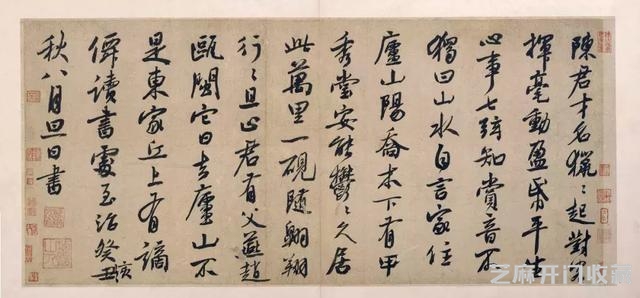 陳君才名獵〻起對客
揮毫動盈帋平生
心事七弦知賞音不
獨曰山水自言家住
廬山陽喬木下有甲
秀堂安能鬱〻久居
此萬里一硯隨翱翔
行〻且止君有父燕趙
甌閩它日去廬山不
是東家江上有謫
僊讀書處至治癸
秋八月旦日書
芝麻开门收藏